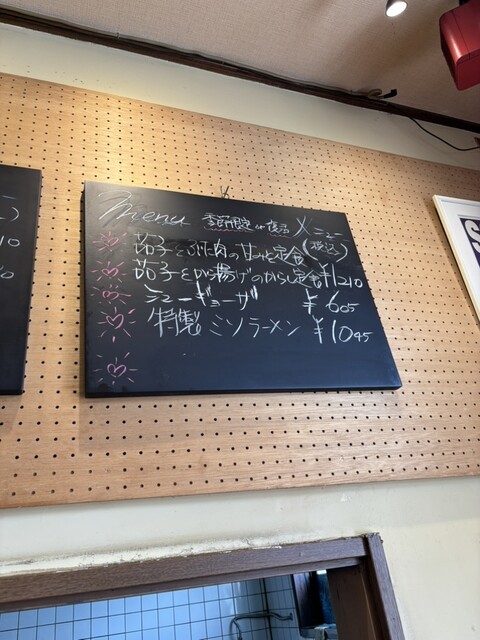 Menu 季節限定 or 復活 メニュー
(税込)
茄子とぶた肉の甘みそ定食
茄子とから揚げのからし定食 ¥1210
ギョーザ ¥605
特製 ミソラーメン ¥1045